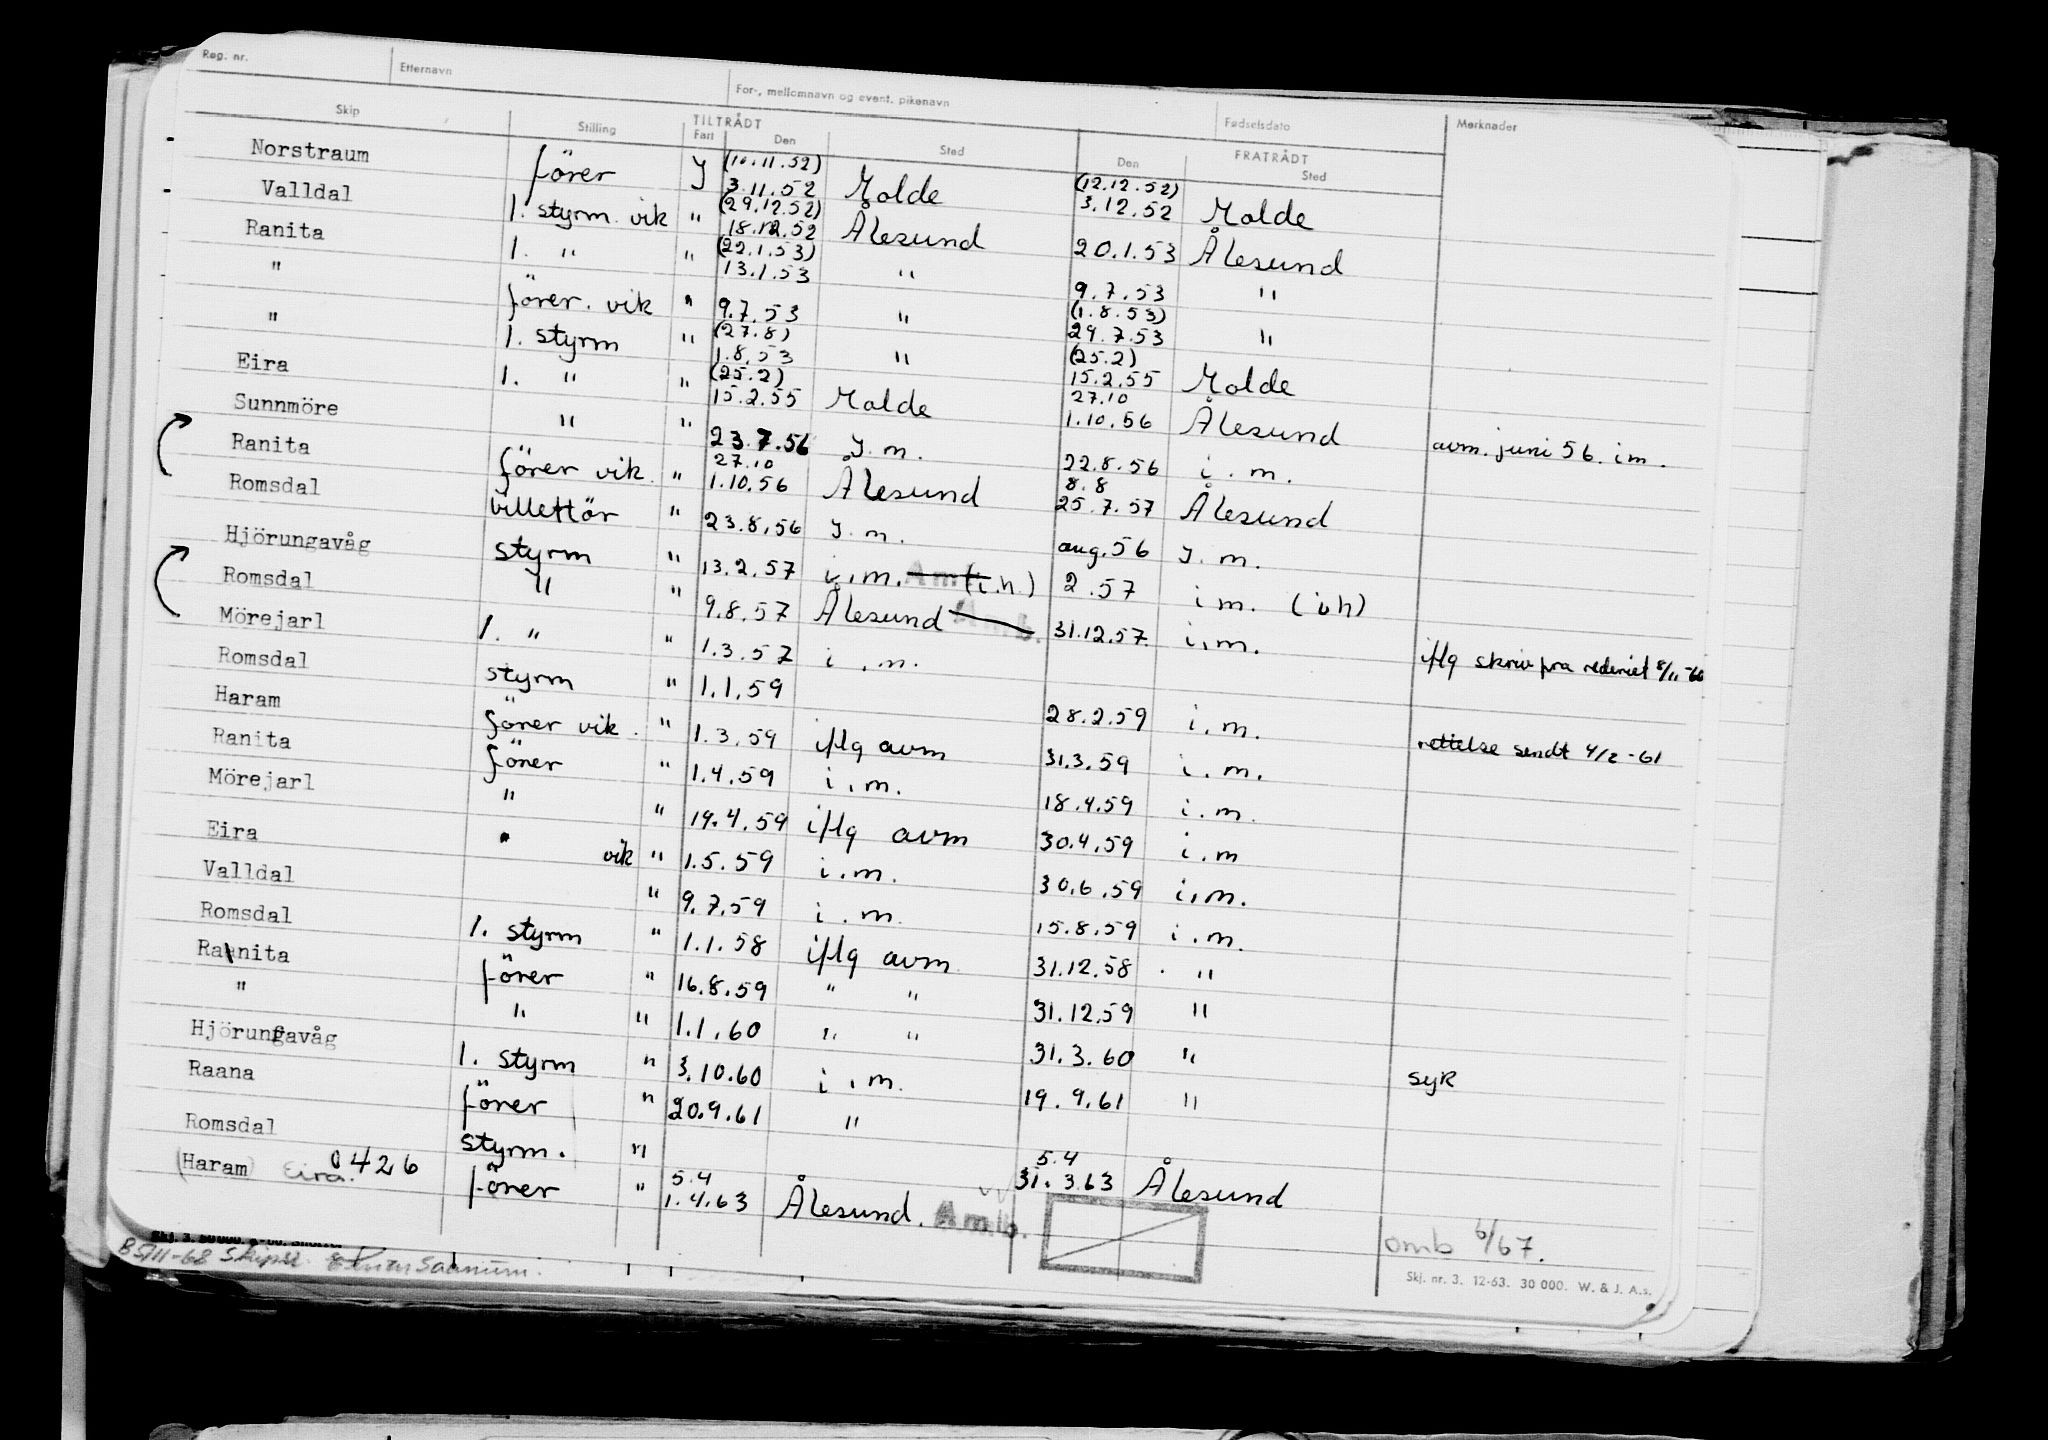 Reg. nr. Etternavn For-, mellomnavn og event. pikenavn Fødselsdato Merknader
Skip Stilling TILTRÅDT Fart Den Sted FRATRÅDT Den Sted
Norstraum förer J (10.11.52) 3.11.52 Molde (12.12.52) 3.12.52 Molde
Valldal 1. styrm. vik " (29.12.52) 18.12.52 Ålesund 20.1.53 Ålesund
Ranita 1. " " (22.1.53) 13.1.53 " 9.7.53 "
" förer. vik " 9.7.53 " (1.8.53) 29.7.53 "
" 1. styrm " (27.8) 1.8.53 " (25.2) 15.2.55 Molde
Eira 1. " " (25.2) 15.2.55 Molde 27.10 1.10.56 Ålesund avm. juni 56. i m.
Sunnmöre " " 23.7.56 J. m. 22.8.56 i. m.
Ranita förer vik. " 27.10 1.10.56 Ålesund 8.8 25.7.57 Ålesund
Romsdal billettör " 23.8.56 J. m. aug. 56 J. m.
Hjörungavåg styrm " 13.2.57 i. m. Am (i.h.) 2.57 i m. (i h)
Romsdal " " 9.8.57 Ålesund Amb. 31.12.57 i. m.
Mörejarl 1. " " 1.3.57 i. m. iflg skriv fra rederiet 8/11-60
Romsdal styrm " 1.1.59 28.2.59 i. m.
Haram förer vik. " 1.3.59 iflg avm 31.3.59 i. m. rettelse sendt 4/2-61
Ranita förer " 1.4.59 i. m. 18.4.59 i. m.
Mörejarl " " 19.4.59 iflg avm 30.4.59 i. m
Eira " vik " 1.5.59 i. m. 30.6.59 i. m.
Valldal " 9.7.59 i. m. 15.8.59 i. m.
Romsdal 1. styrm " 1.1.58 iflg avm 31.12.58 "
Ranita förer " 16.8.59 " " 31.12.59 "
" " " 1.1.60 " " 31.3.60 "
Hjörungavåg 1. styrm " 3.10.60 i. m. 19.9.61 " syk
Raana förer " 20.9.61 "
Romsdal styrm. " 5.4 31.3.63 Ålesund
(Haram) Eira. 0426 förer " 5.4 1.4.63 Ålesund. Amb.
omb 6/67.
Skj. nr. 3. 12-63. 30 000. W. & J. A.s.